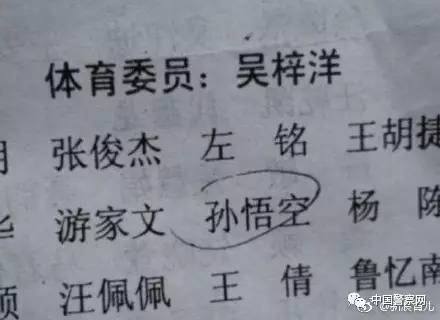 体育委员：吴梓洋
张俊杰 左 铭 王胡捷
游家文 孙悟空 杨 陈
汪佩佩 王 倩 鲁忆南
中国警察网